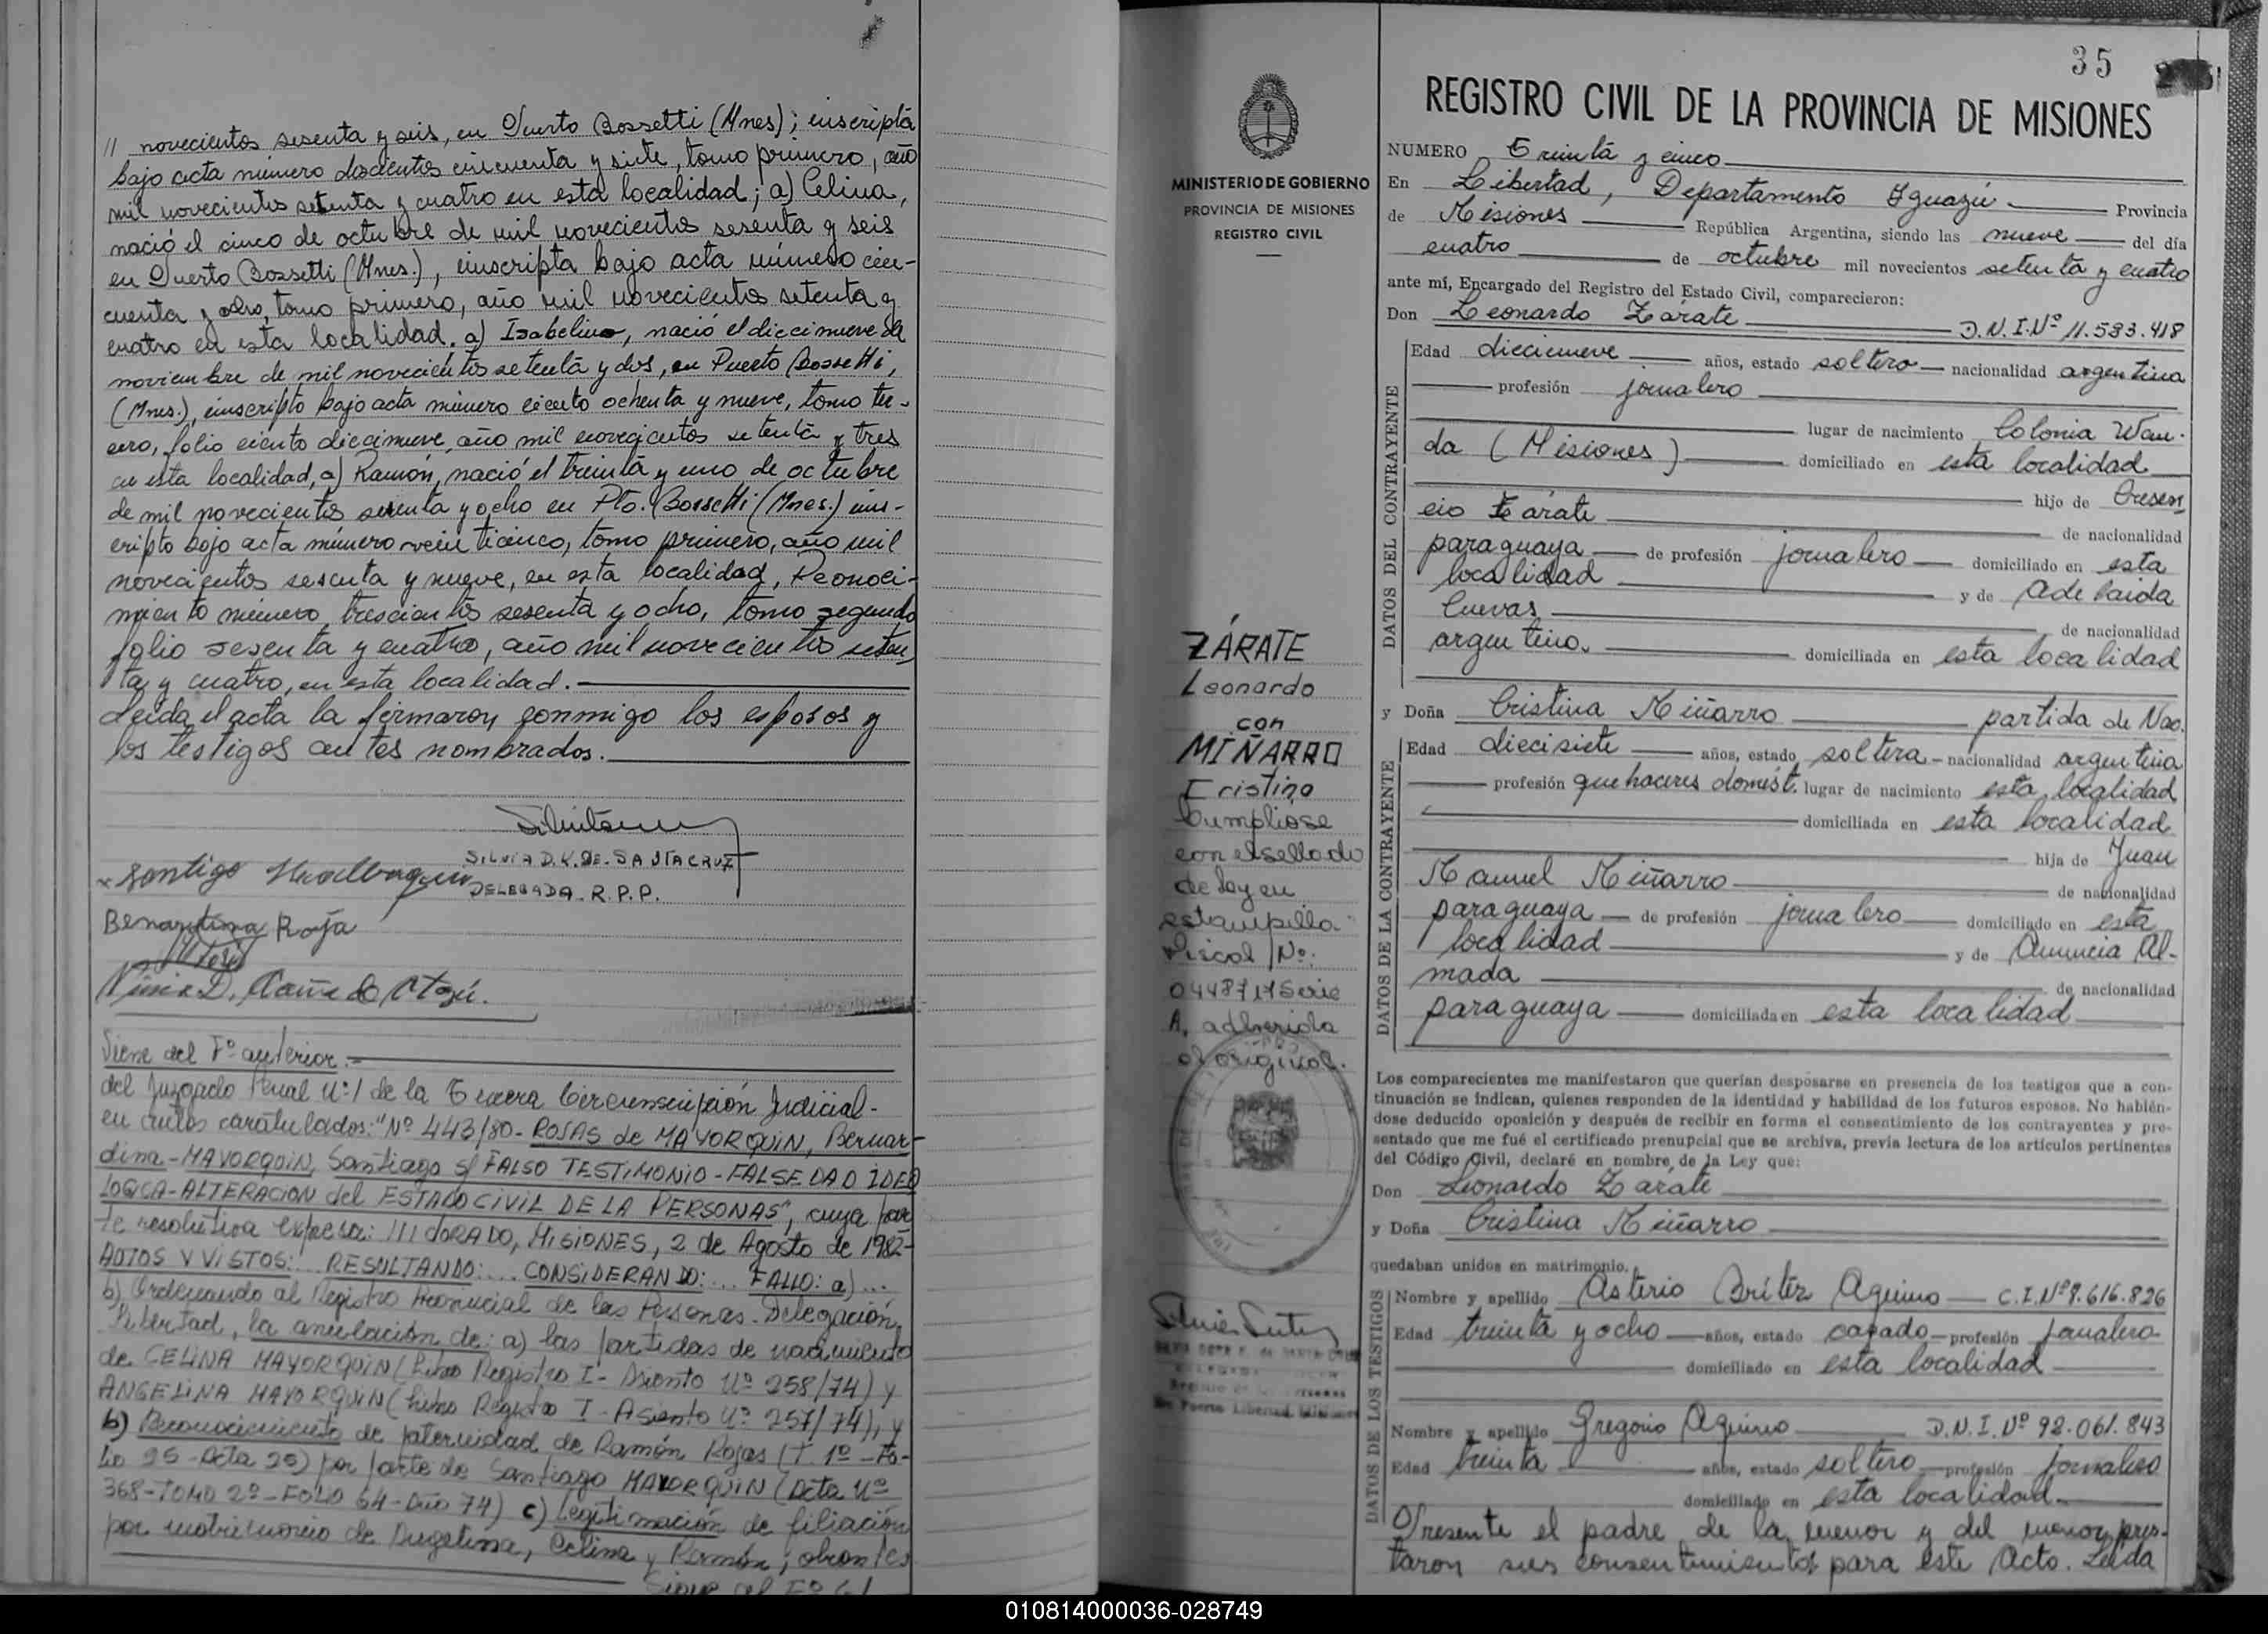 // novecientos sesenta y seis, en Puerto Bossetti (Mnes); inscripta
bajo acta número doscientos cincuenta y siete, tomo primero, año
mil novecientos setenta y cuatro en esta localidad; a) Celina,
nació el cinco de octubre de mil novecientos sesenta y seis
en Puerto Bossetti (Mnes.), inscripta bajo acta número cin-
cuenta y ocho, tomo primero, año mil novecientos setenta y
cuatro en esta localidad. a) Isabelino, nació el diecinueve de
noviembre de mil novecientos setenta y dos, en Puerto Bossetti,
(Mnes.), inscripto bajo acta número ciento ochenta y nueve, tomo ter-
cero, folio ciento diecinueve, año mil novecientos setenta y tres
en esta localidad, a) Ramón, nació el treinta y uno de octubre
de mil novecientos sesenta y ocho en Pto. Bossetti (Mnes.) ins-
cripto bajo acta número veinticinco, tomo primero, año mil
novecientos sesenta y nueve, en esta localidad, Reconoci-
miento número trescientos sesenta y ocho, tomo segundo
folio sesenta y cuatro, año mil novecientos seten
ta y cuatro, en esta localidad.
Leida el acta la firmaron conmigo los esposos y
los testigos antes nombrados.
SILVIA D.K. DE. SANTACRUZ
DELEGADA. R.P.P.
Santigo
Bernardina Roja
Viene del Fº anterior.-
del Juzgado Penal Nº 1 de la Tercera Circunscripción Judicial-
en autos caratulados: "Nº 443/80- ROJAS de MAYORQUIN, Bernar-
dina-MAYORQUIN, Santiago s/ FALSO TESTIMONIO-FALSEDAD IDEO
LOGICA-ALTERACION del ESTADO CIVIL DE LA PERSONAS", cuya par
te resolutiva expresa: ///dORADO, MISIONES, 2 de Agosto de 1982-
AUTOS Y VISTOS:... RESULTANDO:... CONSIDERANDO:... FALLO: a)...
b) Ordenando al Registro Provincial de las Personas-Delegación,
Libertad, la anulación de: a) las partidas de nacimiento
de CELINA MAYORQUIN (Libro Registro I- Asiento Nº 258/74) y
ANGELINA MAYORQUIN (Libro Registro I-Asiento Nº 257/74), y
b) Reconocimiento de paternidad de Ramón Rojas (T. 1º -Fo-
lio 25-Acta 25) por parte de Santiago MAYORQUIN (Acta Nº
368-TOMO 2º-FOLIO 64-Año 74) c) Legitimación de filiación
por matrimonio de Angelina, Celina y Ramón; obrantes
35
MINISTERIO DE GOBIERNO
PROVINCIA DE MISIONES
REGISTRO CIVIL
ZÁRATE
Leonardo
con
MIÑARRO
Cristina
Cumpliose
con el sellado
de ley en
estampilla
Fiscal Nº:
0448717 Serie
A, adherida
al original.
REGISTRO CIVIL DE LA PROVINCIA DE MISIONES
NUMERO Treinta y cinco
En Libertad, Departamento Iguazú Provincia
de Misiones República Argentina, siendo las nueve del día
cuatro de octubre mil novecientos setenta y cuatro
ante mí, Encargado del Registro del Estado Civil, comparecieron:
Don Leonardo Zárate D.N.I.Nº 11.583.418
DATOS DEL CONTRAYENTE
Edad diecinueve años, estado soltero nacionalidad argentina
profesión jornalero
lugar de nacimiento Colonia Wan-
da (Misiones) domiciliado en esta localidad
hijo de Cresen
cio Zárate de nacionalidad
paraguaya de profesión jornalero domiciliado en esta
localidad y de Adelaida
Cuevas de nacionalidad
argentino. domiciliada en esta localidad
y Doña Cristina Miñarro partida de Nac.
DATOS DE LA CONTRAYENTE
Edad diecisiete años, estado soltera nacionalidad argentina
profesión quehaceres domést. lugar de nacimiento esta localidad
domiciliada en esta localidad
hija de Juan
Manuel Miñarro de nacionalidad
paraguaya de profesión jornalero domiciliado en esta
localidad y de Anuncia Al-
mada de nacionalidad
paraguaya domiciliada en esta localidad
Los comparecientes me manifestaron que querían desposarse en presencia de los testigos que a con-
tinuación se indican, quienes responden de la identidad y habilidad de los futuros esposos. No habién-
dose deducido oposición y después de recibir en forma el consentimiento de los contrayentes y pre-
sentado que me fué el certificado prenupcial que se archiva, previa lectura de los artículos pertinentes
del Código Civil, declaré en nombre de la Ley que:
Don Leonardo Zárate
y Doña Cristina Miñarro
quedaban unidos en matrimonio.
DATOS DE LOS TESTIGOS
Nombre y apellido Asterio Brítez Aquino C.I.Nº 9.616.826
Edad treinta y ocho años, estado casado profesión jornalero
domiciliado en esta localidad
DATOS DE LOS TESTIGOS
Nombre y apellido Gregorio Aquino D.N.I.Nº 92.061.843
Edad treinta años, estado soltero profesión jornalero
domiciliado en esta localidad.
Presente el padre de la menor y del menor pres-
taron sus consentimientos para este Acto. Leida
010814000036-028749